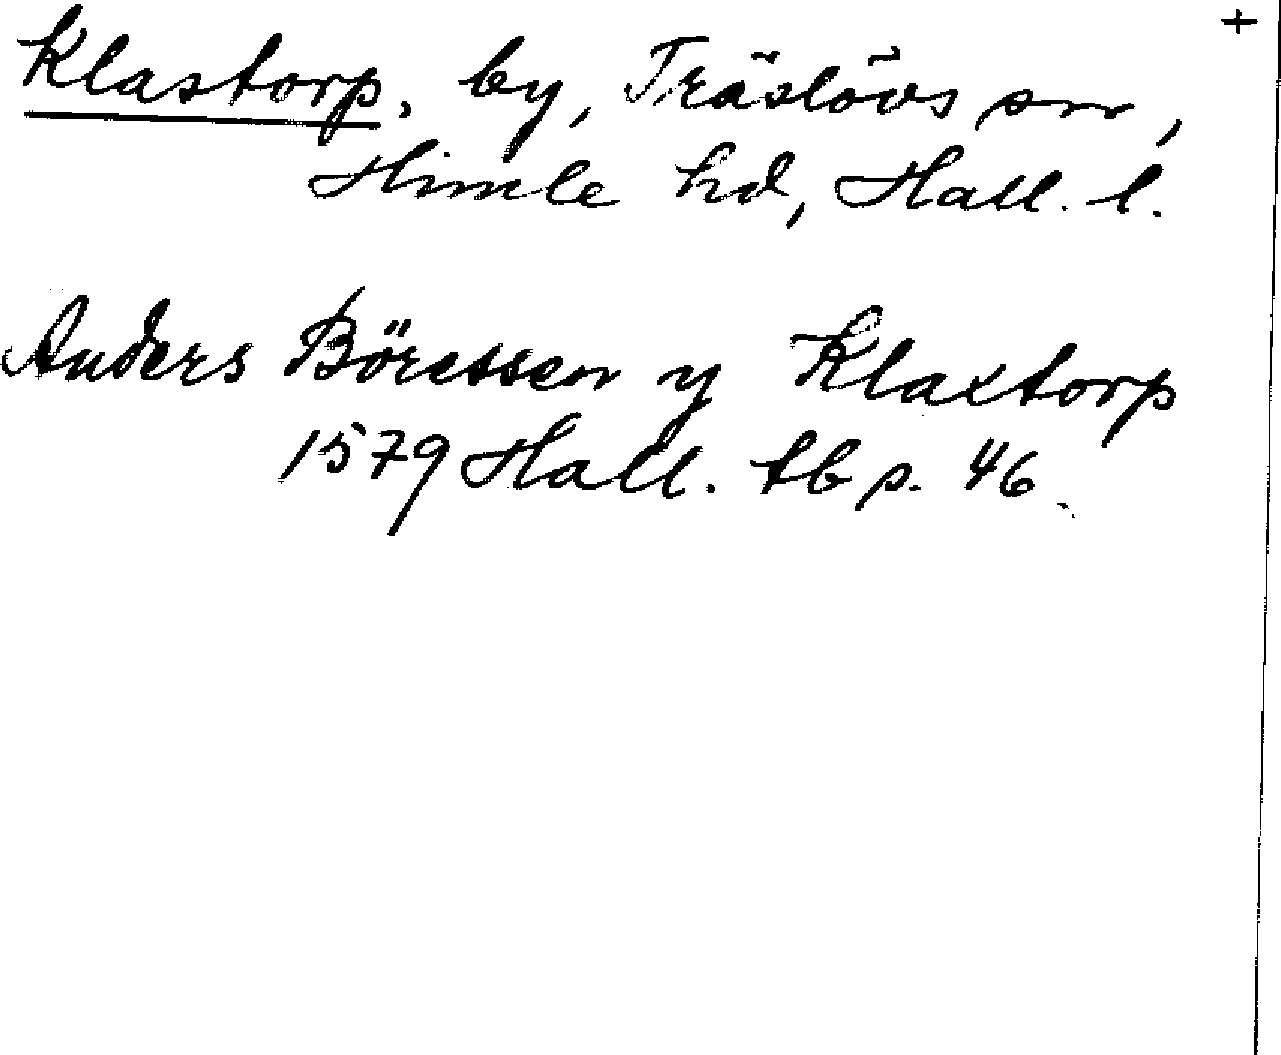 +
Klastorp, by, Träslövs sn,
Himle hd, Hall. l.
Anders Böressen y Klaxtorp
1579 Hall. tb s. 46.